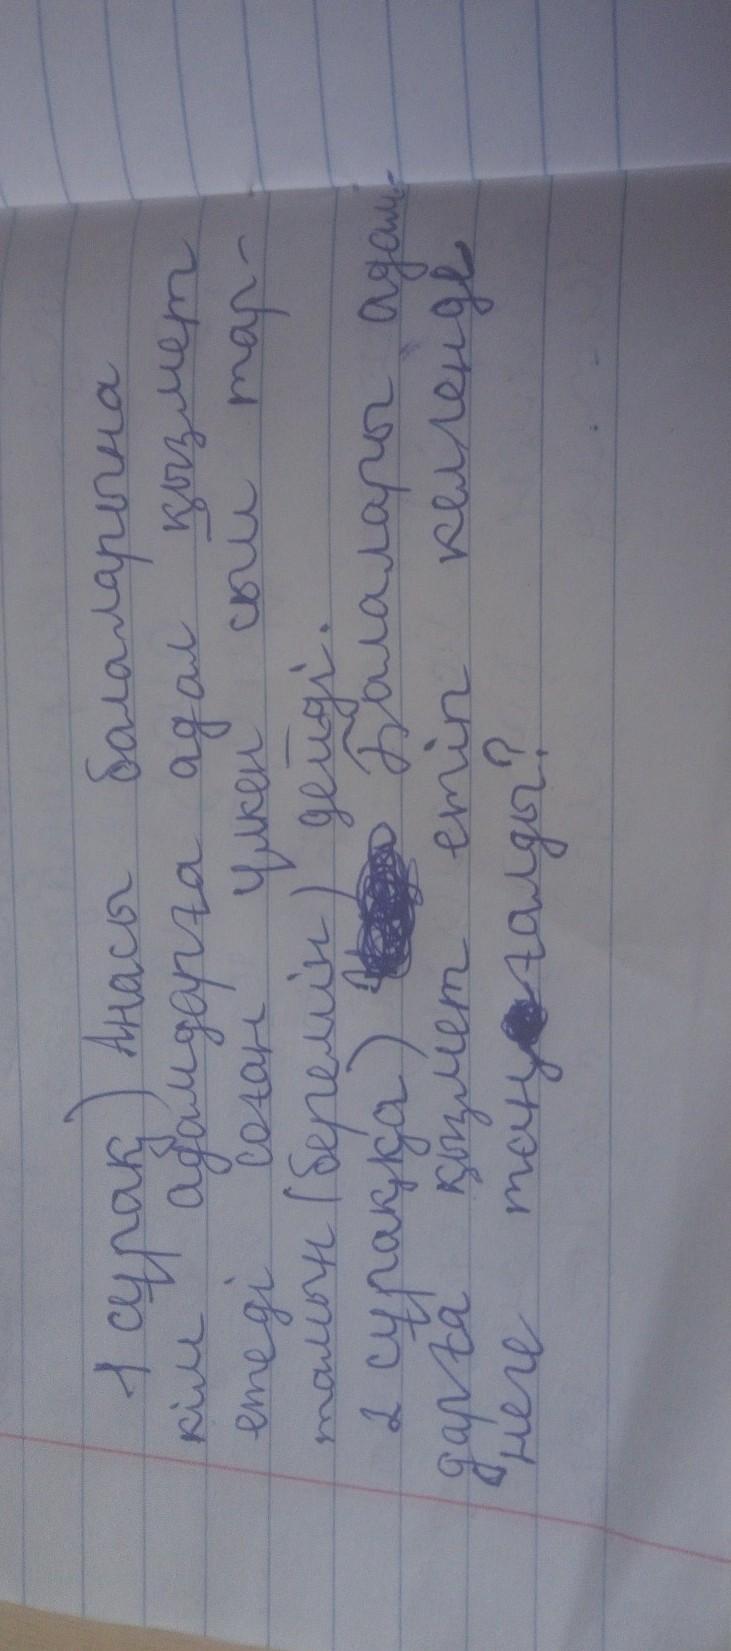 1 сұрақ) Анасы балаларына
кім адамдарға адал қызмет
етеді соған үлкен сый тар-
тамын (беремін) дейді.
2 сұраққа) Балалары адам-
дарға қызмет етіп келгенде
неге таң қалды?